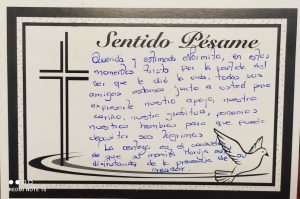 Sentido Pésame
Querida y estimada Normita, en estos
momentos triste por la partida del
ser que le dió la vida, todos sus
amigos estamos junto a usted para
expresarle nuestro apoyo, nuestro
cariño, nuestra gratitud, ponemos
nuestros hombros para que pueda
depositar sus lágrimas.
La certeza es el consuelo
de que su mamita
disfrutando de la presencia de su
creador.
REDMI NOTE